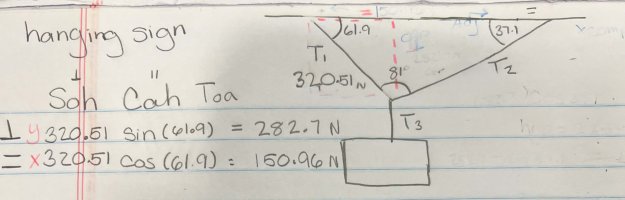 hanging sign
⊥ =
Soh Cah Toa
⊥ y 320.51 sin (61.9) = 282.7 N
= x 320.51 cos (61.9) = 150.96 N
= =
61.9 37.1
T1
320.51 N
81°
T2
T3